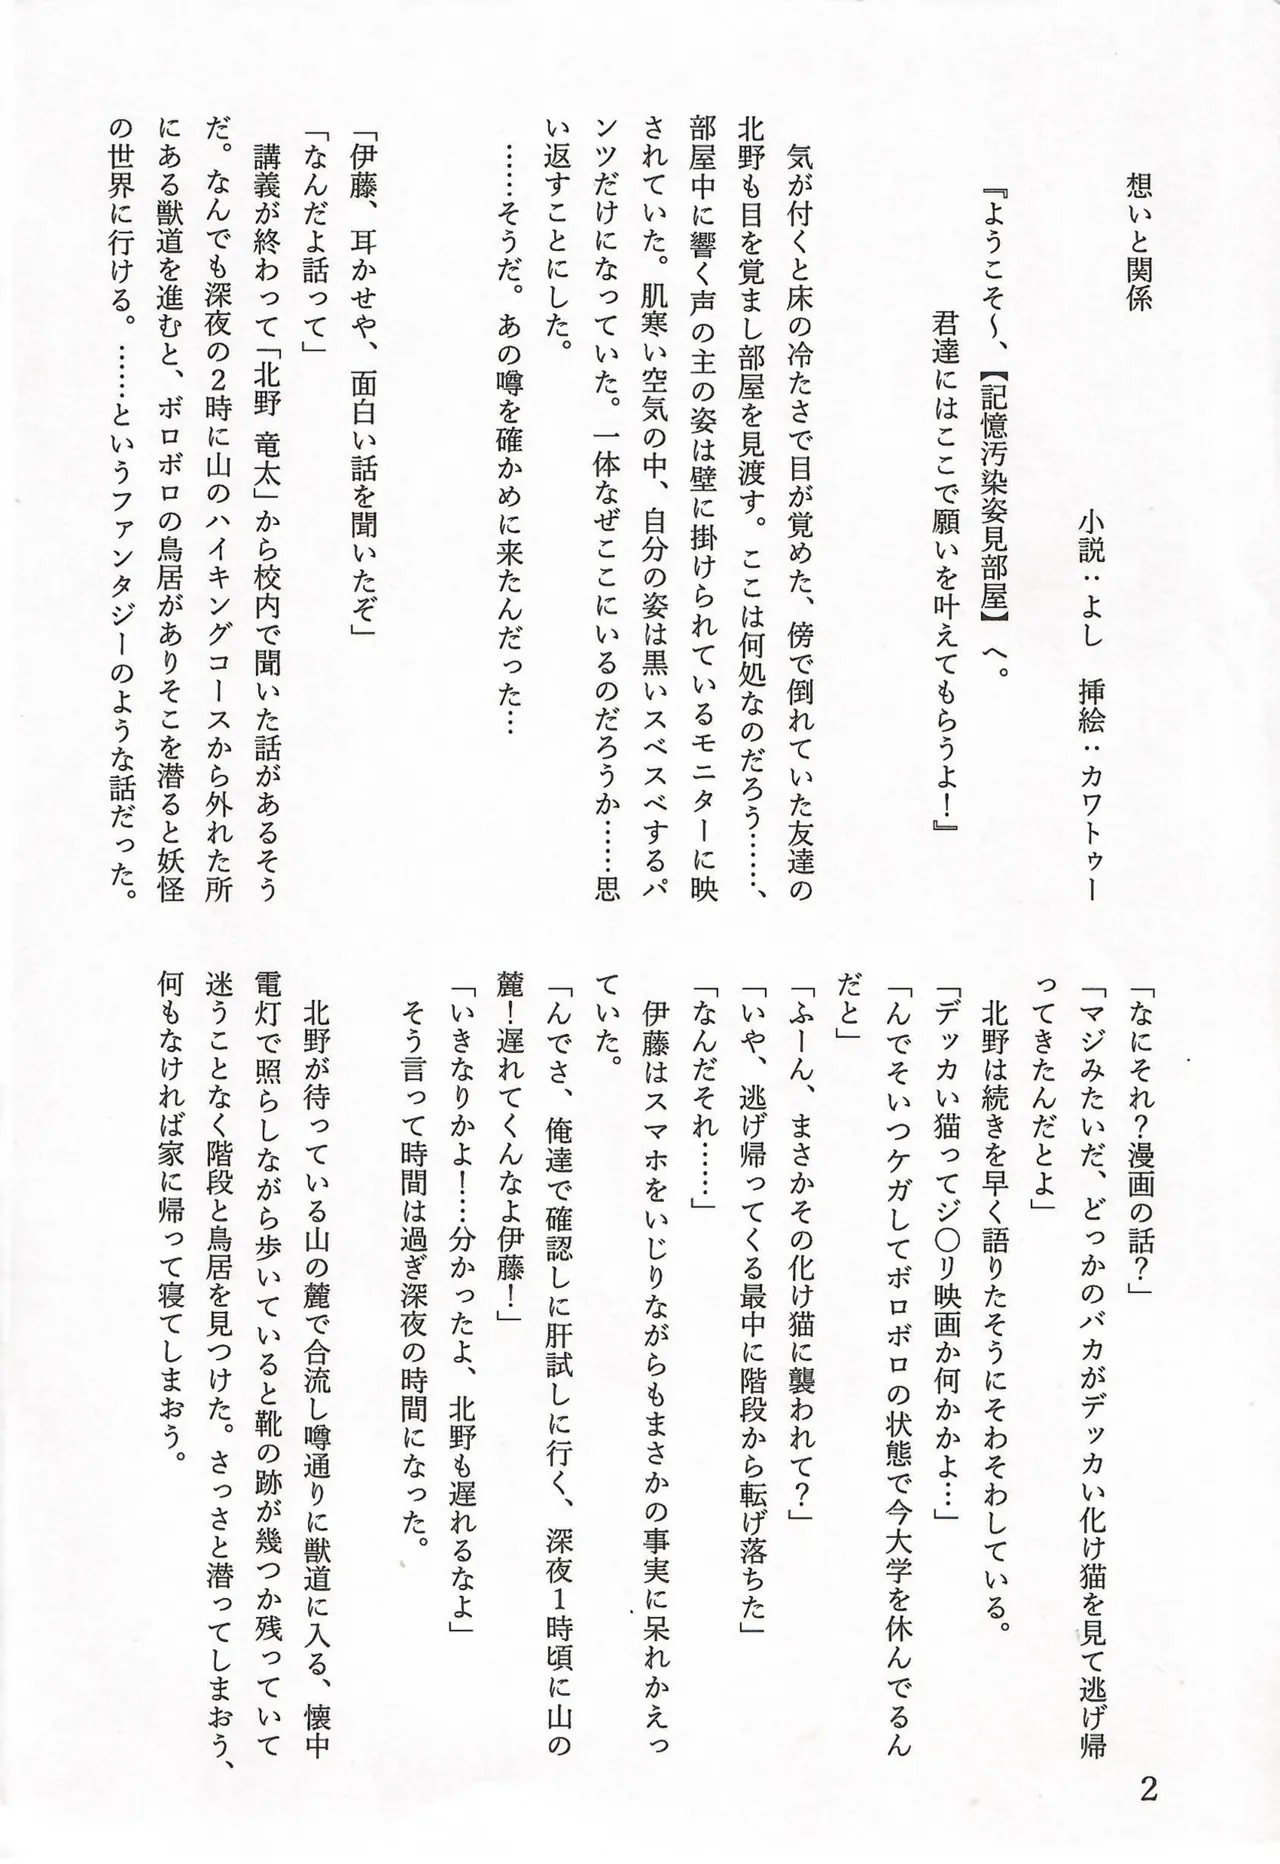 想いと関係
小説:よし　挿絵:カワトゥー
『ようこそ～、【記憶汚染姿見部屋】へ。
君達にはここで願いを叶えてもらうよ!』
気が付くと床の冷たさで目が覚めた、傍で倒れていた友達の
北野も目を覚まし部屋を見渡す。ここは何処なのだろう……、
部屋中に響く声の主の姿は壁に掛けられているモニターに映
されていた。肌寒い空気の中、自分の姿は黒いスベスベするパ
ンツだけになっていた。一体なぜここにいるのだろうか……思
い返すことにした。
……そうだ。あの噂を確かめに来たんだった…
「伊藤、耳かせや、面白い話を聞いたぞ」
「なんだよ話って」
講義が終わって「北野 竜太」から校内で聞いた話があるそう
だ。なんでも深夜の2時に山のハイキングコースから外れた所
にある獣道を進むと、ボロボロの鳥居がありそこを潜ると妖怪
の世界に行ける。……というファンタジーのような話だった。
「なにそれ?漫画の話?」
「マジみたいだ、どっかのバカがデッカい化け猫を見て逃げ帰
ってきたんだとよ」
北野は続きを早く語りたそうにそわそわしている。
「デッカい猫ってジ〇リ映画か何かかよ…」
「んでそいつケガしてボロボロの状態で今大学を休んでるん
だと」
「ふーん、まさかその化け猫に襲われて?」
「いや、逃げ帰ってくる最中に階段から転げ落ちた」
「なんだそれ……」
伊藤はスマホをいじりながらもまさかの事実に呆れかえっ
ていた。
「んでさ、俺達で確認しに肝試しに行く、深夜1時頃に山の
麓!遅れてくんなよ伊藤!」
「いきなりかよ!…分かったよ、北野も遅れるなよ」
そう言って時間は過ぎ深夜の時間になった。
北野が待っている山の麓で合流し噂通りに獣道に入る、懐中
電灯で照らしながら歩いていると靴の跡が幾つか残っていて
迷うことなく階段と鳥居を見つけた。さっさと潜ってしまおう、
何もなければ家に帰って寝てしまおう。
2